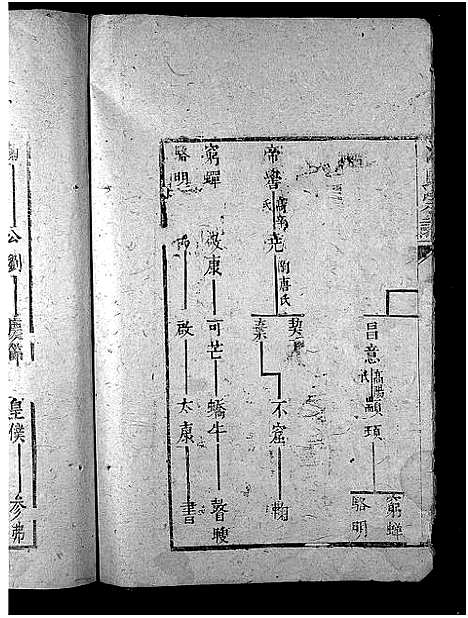 昌意 高陽氏 顓頊
窮蟬
駱明
帝嚳 高辛氏 堯 陶唐氏 契
棄 不窋 鞠
窮蟬 敬康 句芒 蟜牛 瞽瞍
駱明 啟 太康
公劉 慶節 皇僕 參弗